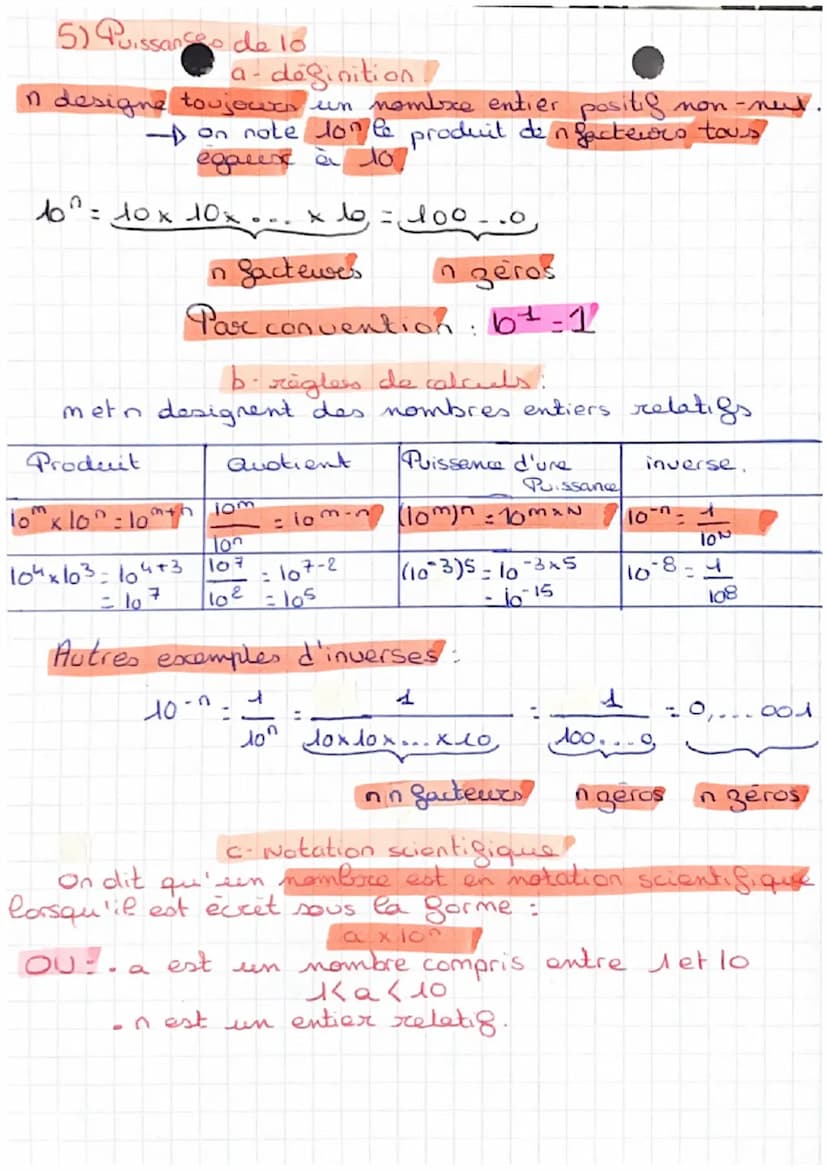 5) Puissances de 10
a - définition
n designe toujours un nombre entier positif non-nul.
→ on note 10ⁿ le produit de n facteurs tous
égaux à 10
10ⁿ = 10 x 10 x ... x 10 = 100...0
n facteurs n zéros
Par convention : b¹ = 1
b - règles de calculs :
m et n designent des nombres entiers relatifs
Produit Quotient Puissance d'une Puissance inverse.
10ᵐ x 10ⁿ = 10ᵐ⁺ⁿ 10ᵐ/10ⁿ = 10ᵐ⁻ⁿ (10ᵐ)ⁿ = 10ᵐˣᴺ 10⁻ⁿ = 1/10ᴺ
10⁴ x 10³ = 10⁴⁺³ 10⁷/10² = 10⁷⁻² (10⁻³)5 = 10⁻³ˣ⁵ 10⁻⁸ = 1/10⁸
= 10⁷ = 10⁵ = 10⁻¹⁵
Autres exemples d'inverses :
10⁻ⁿ = 1/10ⁿ = 1/(10x10x...x10) = 1/(100...0) = 0,...001
n n facteurs n zéros n zéros
c - Notation scientifique
On dit qu'un nombre est en notation scientifique
lorsqu'il est écrit sous la forme :
a x 10ⁿ
OU : . a est un nombre compris entre 1 et 10
1 < a < 10
. n est un entier relatif.